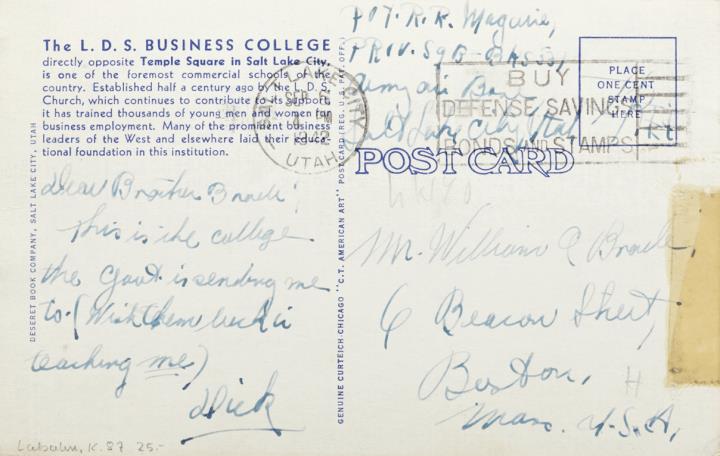 The L. D. S. BUSINESS COLLEGE
directly opposite Temple Square in Salt Lake City,
is one of the foremost commercial schools of the
country. Established half a century ago by the L. D. S.
Church, which continues to contribute to its support,
it has trained thousands of young men and women for
business employment. Many of the prominent business
leaders of the West and elsewhere laid their educa-
tional foundation in this institution.
DESERET BOOK COMPANY, SALT LAKE CITY, UTAH
Dear Brother
This is the college
the Gov't is sending me
to. (Wish them luck in
teaching me)
Dick
Labahn, K. 87 25.-
GENUINE CURTEICH-CHICAGO "C.T. AMERICAN ART" POST CARD (REG. U. S. PAT. OFF.)
SALT LAKE CITY
SEP
1942
UTAH
PVT. R. R. Maguire,
Army Air Base
Salt Lake City, Utah
BUY
DEFENSE SAVINGS
BONDS AND STAMPS
PLACE
ONE CENT
STAMP
HERE
POST CARD
Mr. William C
6 Beacon Street,
Boston,
H
Mass. U.S.A.